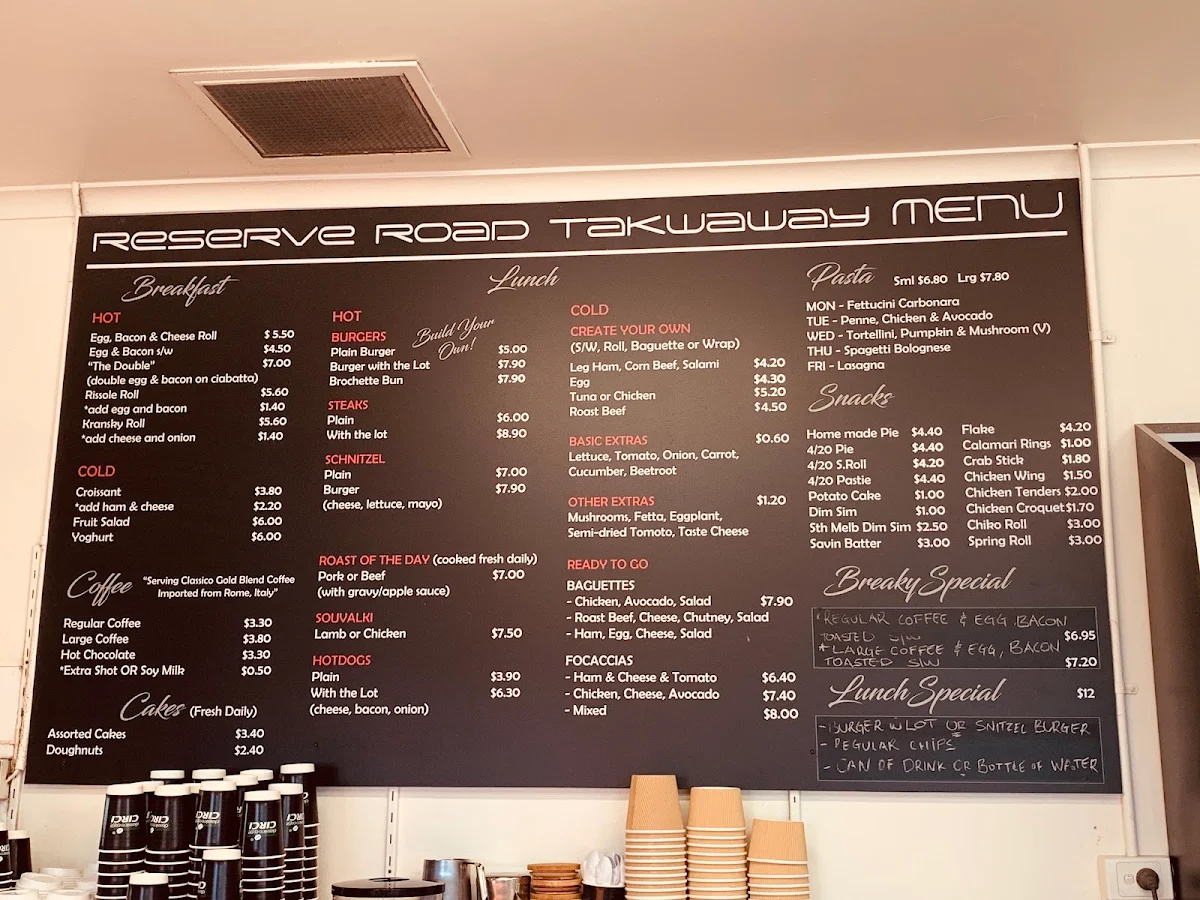 RESERVE ROAD TAKWAWAY MENU
Breakfast
HOT
Egg, Bacon & Cheese Roll $5.50
Egg & Bacon s/w $4.50
"The Double" $7.00
(double egg & bacon on ciabatta)
Rissole Roll $5.60
*add egg and bacon $1.40
Kransky Roll $5.60
*add cheese and onion $1.40
COLD
Croissant $3.80
*add ham & cheese $2.20
Fruit Salad $6.00
Yoghurt $6.00
Coffee "Serving Classico Gold Blend Coffee
Imported from Rome, Italy"
Regular Coffee $3.30
Large Coffee $3.80
Hot Chocolate $3.30
*Extra Shot OR Soy Milk $0.50
Cakes (Fresh Daily)
Assorted Cakes $3.40
Doughnuts $2.40
Lunch
HOT
BURGERS
Build Your
Own!
Plain Burger $5.00
Burger with the Lot $7.90
Brochette Bun $7.90
STEAKS
Plain $6.00
With the lot $8.90
SCHNITZEL
Plain $7.00
Burger $7.90
(cheese, lettuce, mayo)
ROAST OF THE DAY (cooked fresh daily)
Pork or Beef $7.00
(with gravy/apple sauce)
SOUVALKI
Lamb or Chicken $7.50
HOTDOGS
Plain $3.90
With the Lot $6.30
(cheese, bacon, onion)
COLD
CREATE YOUR OWN
(S/W, Roll, Baguette or Wrap)
Leg Ham, Corn Beef, Salami $4.20
Egg $4.30
Tuna or Chicken $5.20
Roast Beef $4.50
BASIC EXTRAS $0.60
Lettuce, Tomato, Onion, Carrot,
Cucumber, Beetroot
OTHER EXTRAS $1.20
Mushrooms, Fetta, Eggplant,
Semi-dried Tomoto, Taste Cheese
READY TO GO
BAGUETTES
- Chicken, Avocado, Salad $7.90
- Roast Beef, Cheese, Chutney, Salad
- Ham, Egg, Cheese, Salad
FOCACCIAS
- Ham & Cheese & Tomato $6.40
- Chicken, Cheese, Avocado $7.40
- Mixed $8.00
Pasta Sml $6.80 Lrg $7.80
MON - Fettucini Carbonara
TUE - Penne, Chicken & Avocado
WED - Tortellini, Pumpkin & Mushroom (V)
THU - Spagetti Bolognese
FRI - Lasagna
Snacks
Home made Pie $4.40
4/20 Pie $4.40
4/20 S.Roll $4.20
4/20 Pastie $4.40
Potato Cake $1.00
Dim Sim $1.00
Sth Melb Dim Sim $2.50
Savin Batter $3.00
Flake $4.20
Calamari Rings $1.00
Crab Stick $1.80
Chicken Wing $1.50
Chicken Tenders $2.00
Chicken Croquet $1.70
Chiko Roll $3.00
Spring Roll $3.00
Breaky Special
*REGULAR COFFEE & EGG BACON
TOASTED S/W $6.95
*LARGE COFFEE & EGG, BACON
TOASTED S/W $7.20
Lunch Special $12
- BURGER W LOT OR SNITZEL BURGER
- REGULAR CHIPS
- CAN OF DRINK OR BOTTLE OF WATER